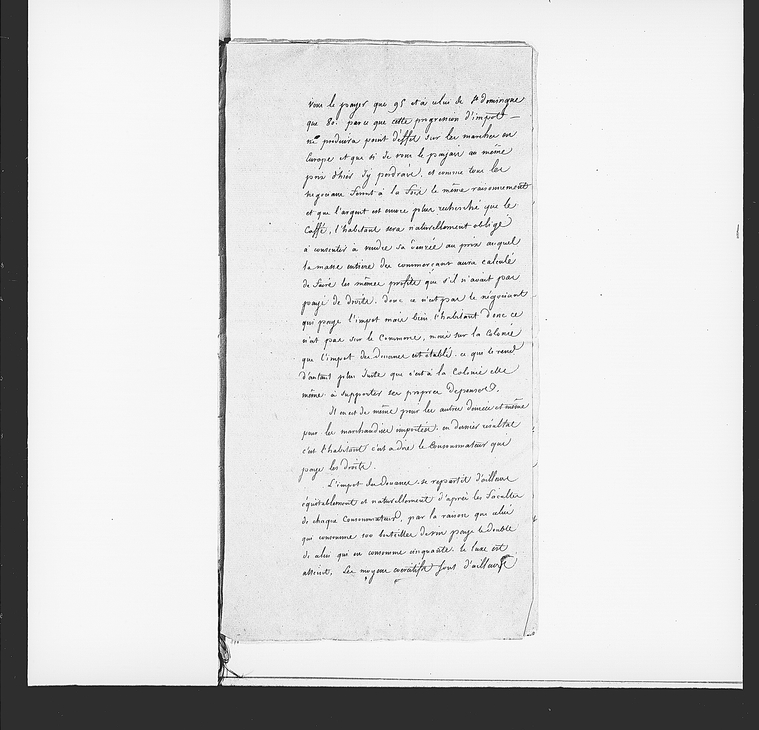 vous le payer que 95 et à celui de St domingue
que 80. parce que cette progression d'impot —
ne produira point d'effet sur les marchés en
Europe et que si je vous le payais au même
prix d'hier j'y perdrais, et comme tous les
negociants feront à la fois le même raisonnement
et que l'argent est encore plus recherché que le
Caffé, l'habitant sera naturellement obligé
à consentir à vendre sa denrée au prix auquel
la masse entiere des commerçants aura calculé
de faire les mêmes profits que s'il n'avait pas
payé de droits. donc ce n'est pas le négociant
qui paye l'impot mais bien l'habitant donc ce
n'est pas sur le Commerce, mais sur la Colonie
que l'impot des Douanes est établi. ce qui le rend
d'autant plus Juste que c'est à la Colonie elle
même à supporter ses propres Depenses.
Il en est de même pour les autres denrées et même
pour les marchandises importées. en dernier résultat
c'est l'habitant c'est à dire le Consommateur qui
paye les droits.
L'impot des Douanes se repartit d'ailleurs
équitablement et naturellement d'après les facultés
de chaque Consommateur, par la raison que celui
qui consomme 100 bouteilles de vin paye le double
de celui qui en consomme cinquante. le luxe est
atteint. Les moyens coercitifs sont d'ailleurs